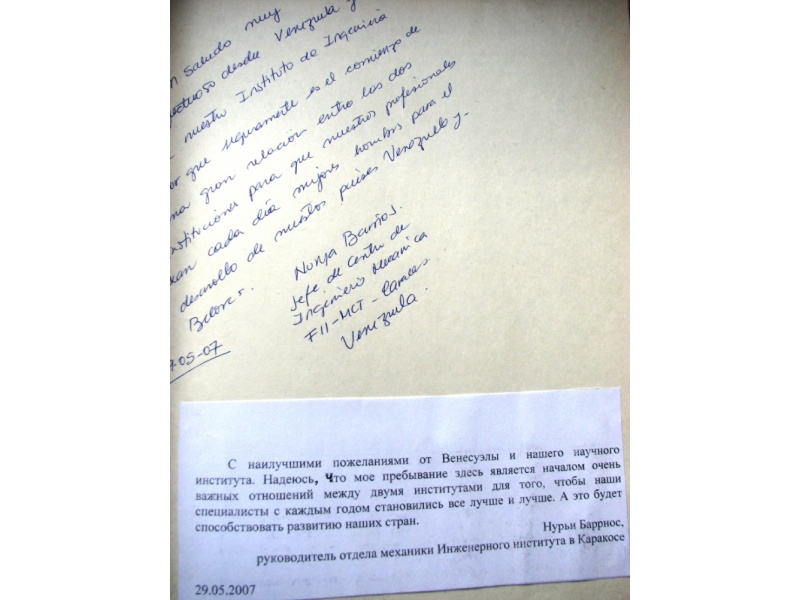 n saludo muy
ectuoso desde Venezuela y
nuestro Instituto de Ingeniería
or que seguramente es el comienzo de
na gran relación entre las dos
nstituciones para que nuestros profesionales
ean cada día mejores hombres para el
desarrollo de nuestros países Venezuela y
Belorus.
Nurya Barrios.
Jefe de Centro de
Ingeniería Mecánica
FII-MCT-Caracas.
Venezuela.
9-05-07
С наилучшими пожеланиями от Венесуэлы и нашего научного
института. Надеюсь, Что мое пребывание здесь является началом очень
важных отношений между двумя институтами для того, чтобы наши
специалисты с каждым годом становились все лучше и лучше. А это будет
способствовать развитию наших стран.
Нурьи Баррнос,
руководитель отдела механики Инженерного института в Каракосе
29.05.2007